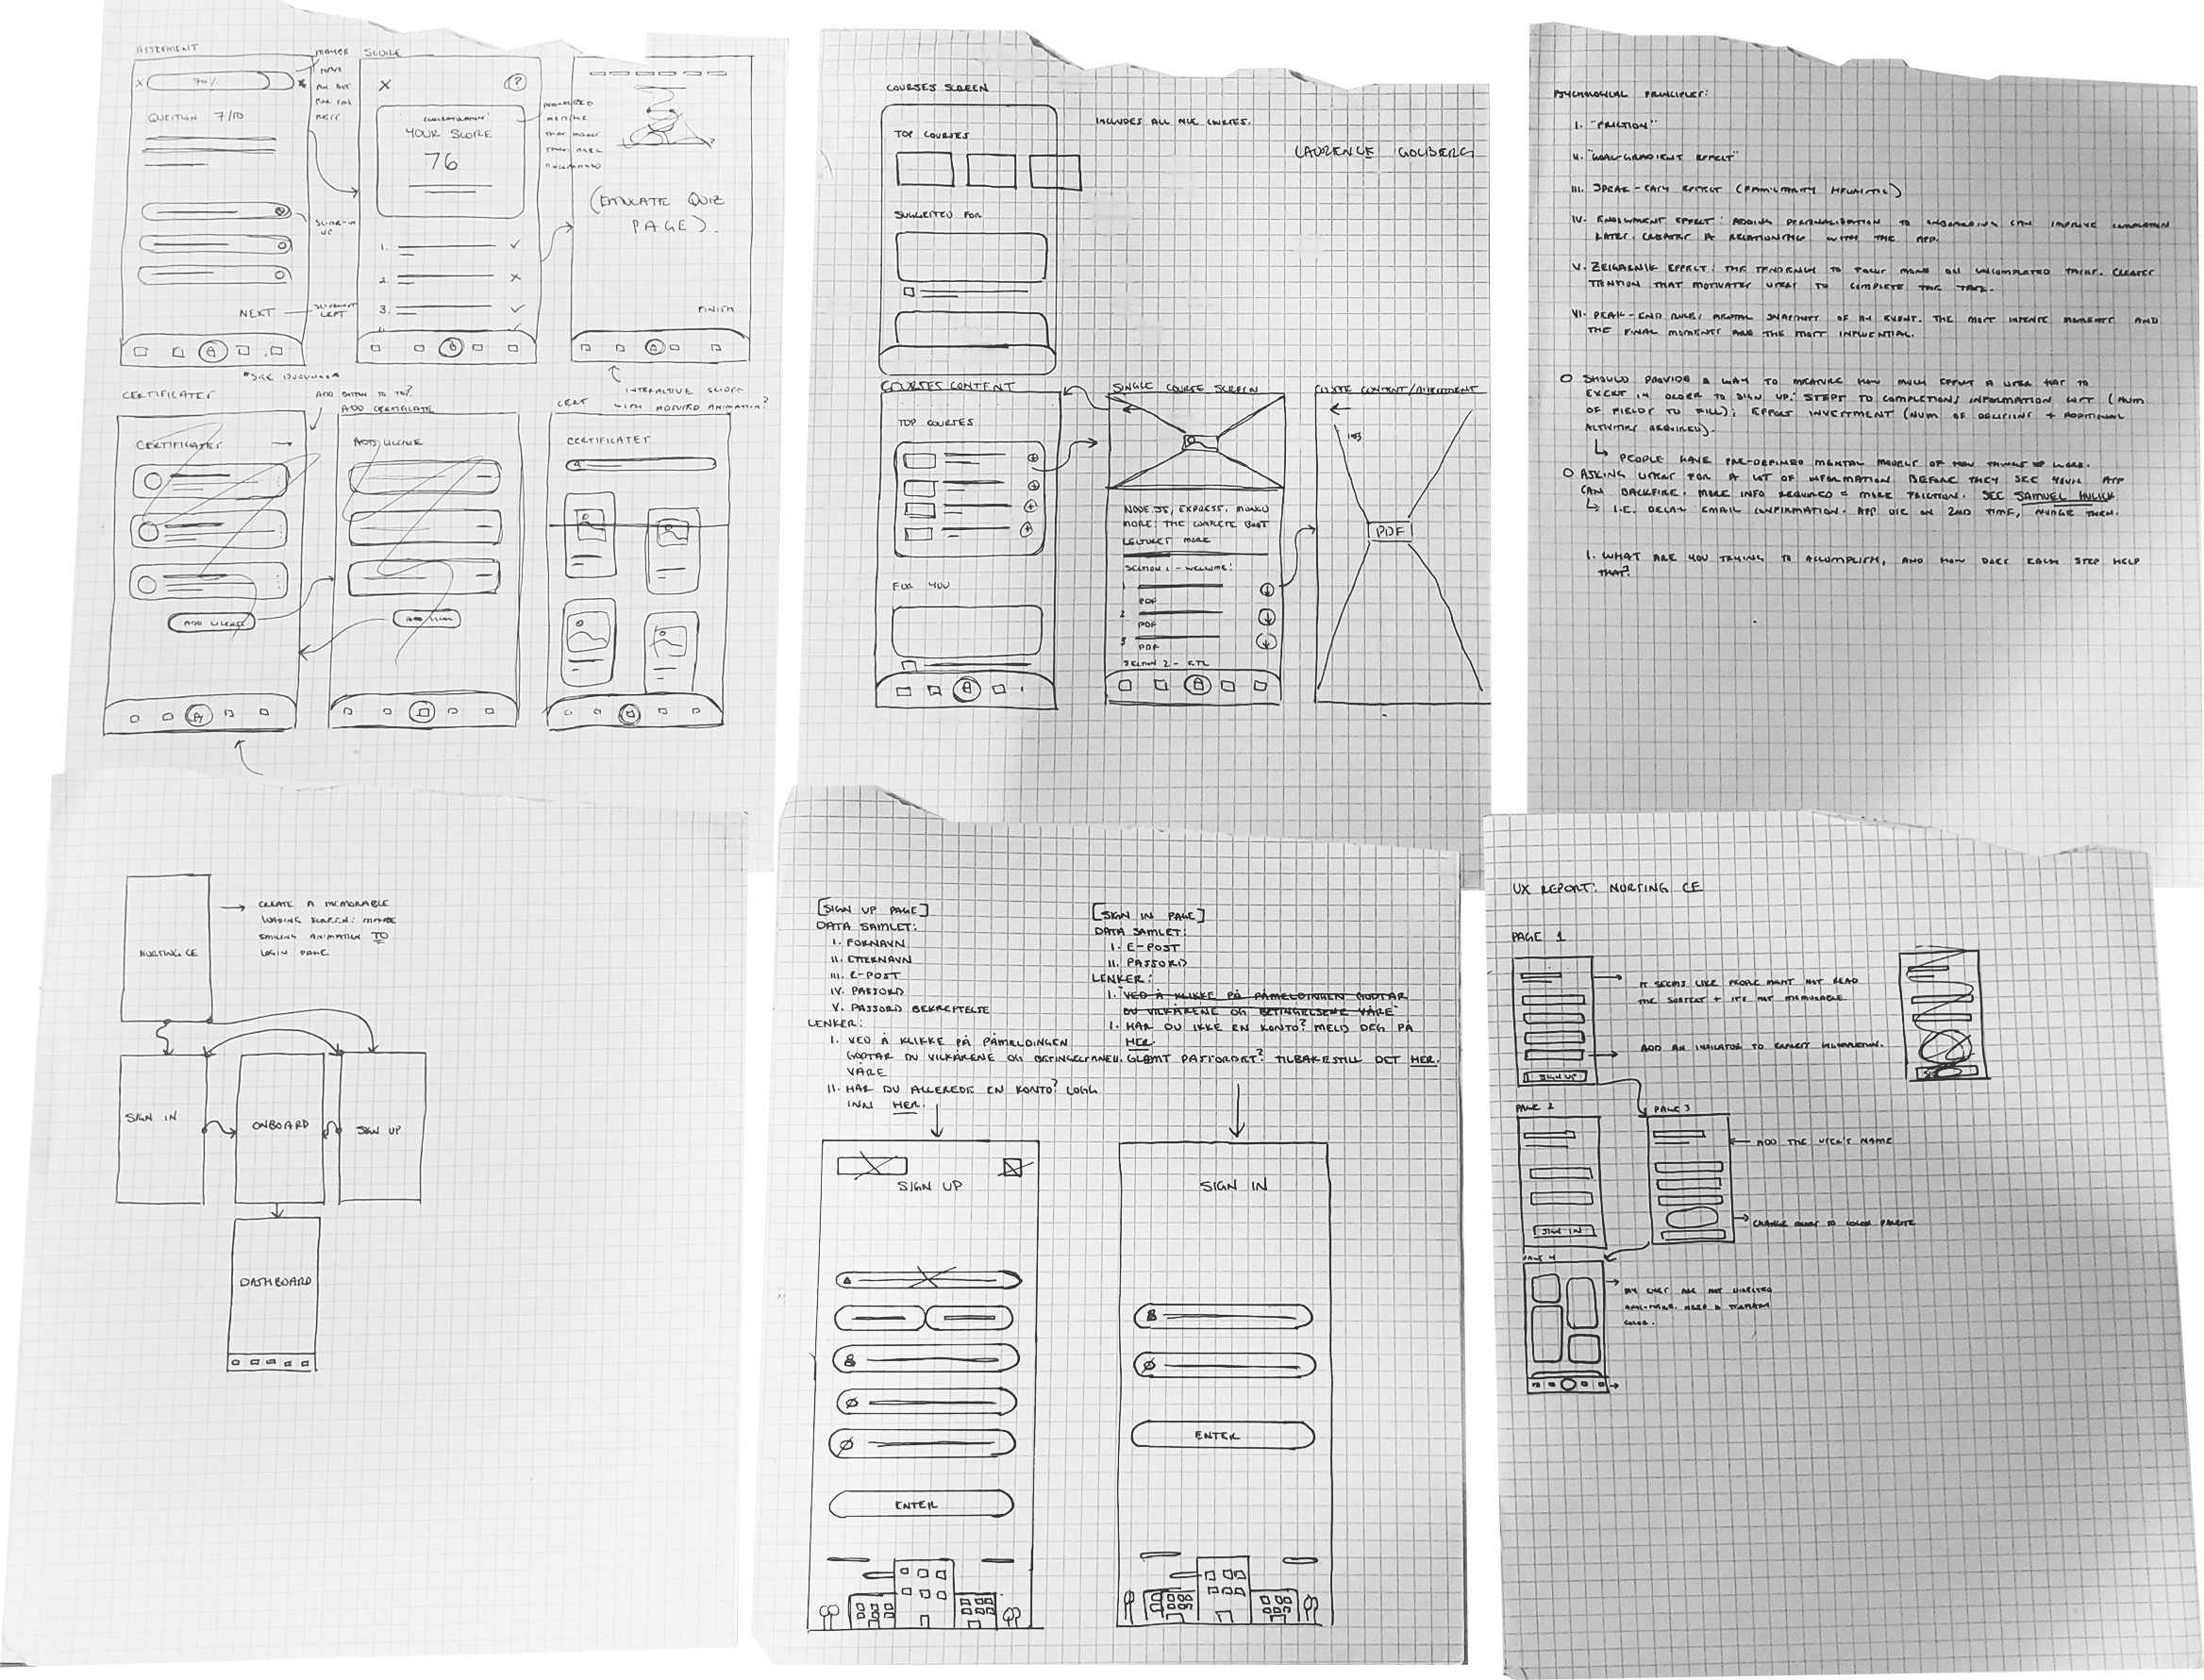 SCORE
70%
QUESTION 7/10
NEXT
YOUR SCORE
76
1.
2.
3.
(EMULATE QUIZ
PAGE).
FINISH
INTERACTIVE SLIDES
CERTIFICATES
CERTIFICATES
ADD BUTTON TO TOP?
ADD CERTIFICATE
ADD LICENSE
CERT
CERTIFICATES
ADD LICENSE
COURSES SCREEN
INCLUDES ALL NCE COURSES.
LAURENCE GOLBERG
TOP COURSES
SUGGESTED FOR
COURSES CONTENT
TOP COURSES
FOR YOU
SINGLE COURSE SCREEN
NODE.JS, EXPRESS, MONGO
MORE: THE COMPLETE BOOT
LECTURES MORE
SECTION 1 - WELCOME!
1
PDF
2
PDF
3
PDF
SECTION 2 - ETL
COURSE CONTENT/ASSESSMENT
PDF
PSYCHOLOGICAL PRINCIPLES:
I. "FRICTION"
II. "GOAL-GRADIENT EFFECT"
III. SPEAK-EASY EFFECT (FAMILIARITY HEURISTIC)
IV. ENDOWMENT EFFECT: ADDING PERSONALISATION TO ONBOARDING CAN IMPROVE COMPLETION
LATER. CREATES A RELATIONSHIP WITH THE APP.
V. ZEIGARNIK EFFECT: THE TENDENCY TO FOCUS MORE ON UNCOMPLETED TASKS. CREATES
TENSION THAT MOTIVATES USERS TO COMPLETE THE TASK.
VI. PEAK-END RULE: MENTAL SNAPSHOTS OF AN EVENT. THE MOST INTENSE MOMENTS AND
THE FINAL MOMENTS ARE THE MOST INFLUENTIAL.
SHOULD PROVIDE A WAY TO MEASURE HOW MUCH EFFORT A USER HAS TO
EXERT IN ORDER TO SIGN UP: STEPS TO COMPLETION; INFORMATION COST (NUM
OF FIELDS TO FILL); EFFORT INVESTMENT (NUM OF DECISIONS + ADDITIONAL
ACTIVITIES REQUIRED).
PEOPLE HAVE PRE-DEFINED MENTAL MODELS OF HOW THINGS WORK.
ASKING USERS FOR A LOT OF INFORMATION BEFORE THEY SEE YOUR APP
CAN BACKFIRE. MORE INFO REQUIRED = MORE FRICTION. SEE SAMUEL HULICK
I.E. DELAY EMAIL CONFIRMATION. APP USE ON 2ND TIME, NUDGE THEM.
1. WHAT ARE YOU TRYING TO ACCOMPLISH, AND HOW DOES EACH STEP HELP
THAT?
NURSING CE
CREATE A MEMORABLE
LOADING SCREEN: MAYBE
SMILING ANIMATION TO
LOGIN PAGE
SIGN IN
ONBOARD
SIGN UP
DASHBOARD
[SIGN UP PAGE]
DATA SAMLET:
I. FORNAVN
II. ETTERNAVN
III. E-POST
IV. PASSORD
V. PASSORD BEKREFTELSE
LENKER:
I. VED Å KLIKKE PÅ PÅMELDINGEN
GODTAR DU VILKÅRENE OG BETINGELSENE
VÅRE
II. HAR DU ALLEREDE EN KONTO? LOGG
INN HER.
[SIGN IN PAGE]
DATA SAMLET:
I. E-POST
II. PASSORD
LENKER:
I. "VED Å KLIKKE PÅ PÅMELDINGEN GODTAR
DU VILKÅRENE OG BETINGELSENE VÅRE"
I. HAR DU IKKE EN KONTO? MELD DEG PÅ
HER.
II. GLEMT PASSORDET? TILBAKESTILL DET HER.
SIGN UP
ENTER
SIGN IN
ENTER
UX REPORT: NURSING CE
PAGE 1
IT SEEMS LIKE PEOPLE MIGHT NOT READ
THE SUBTEXT + IT'S NOT MEMORABLE.
ADD AN INDICATOR TO EXPECT COMPLETION.
SIGN UP
PAGE 2
SIGN IN
PAGE 3
ADD THE USER'S NAME
PAGE 4
MY EYES ARE NOT DIRECTED
COLOR.